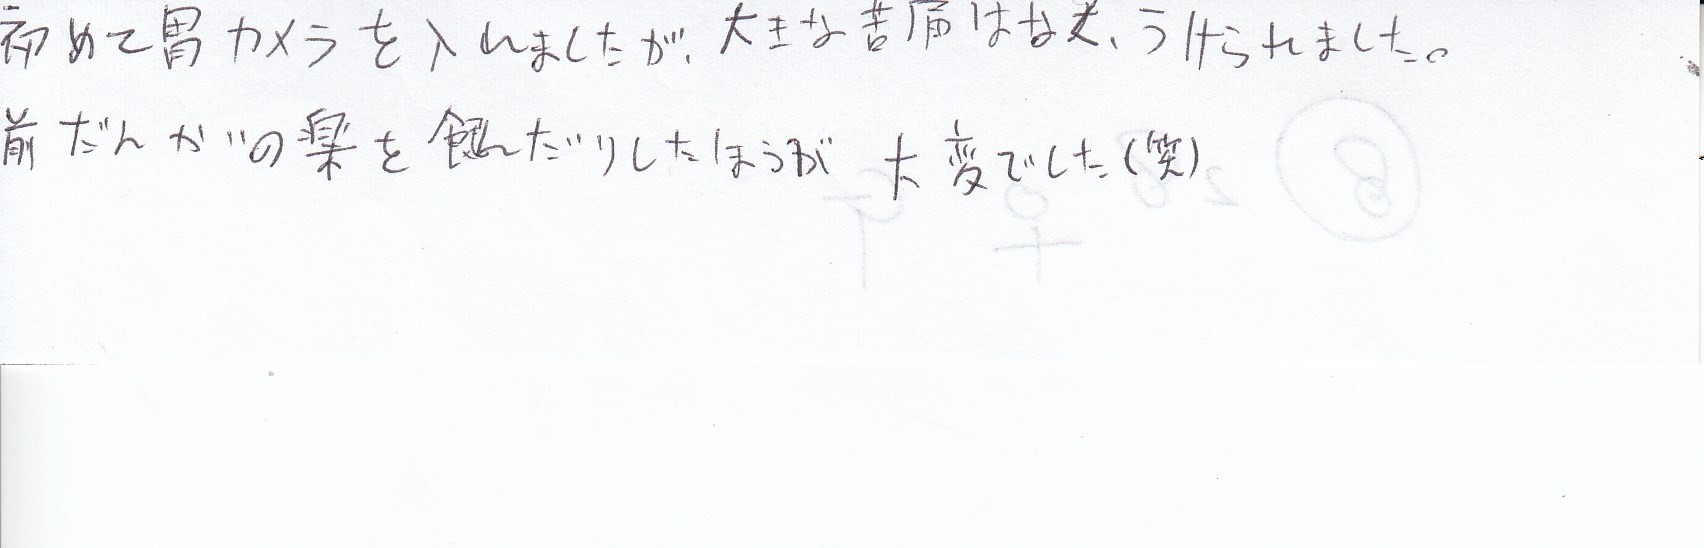 初めて胃カメラを入れましたが、大きな苦痛はなく、うけられました。
前だんかいの薬を飲んだりしたほうが大変でした(笑)